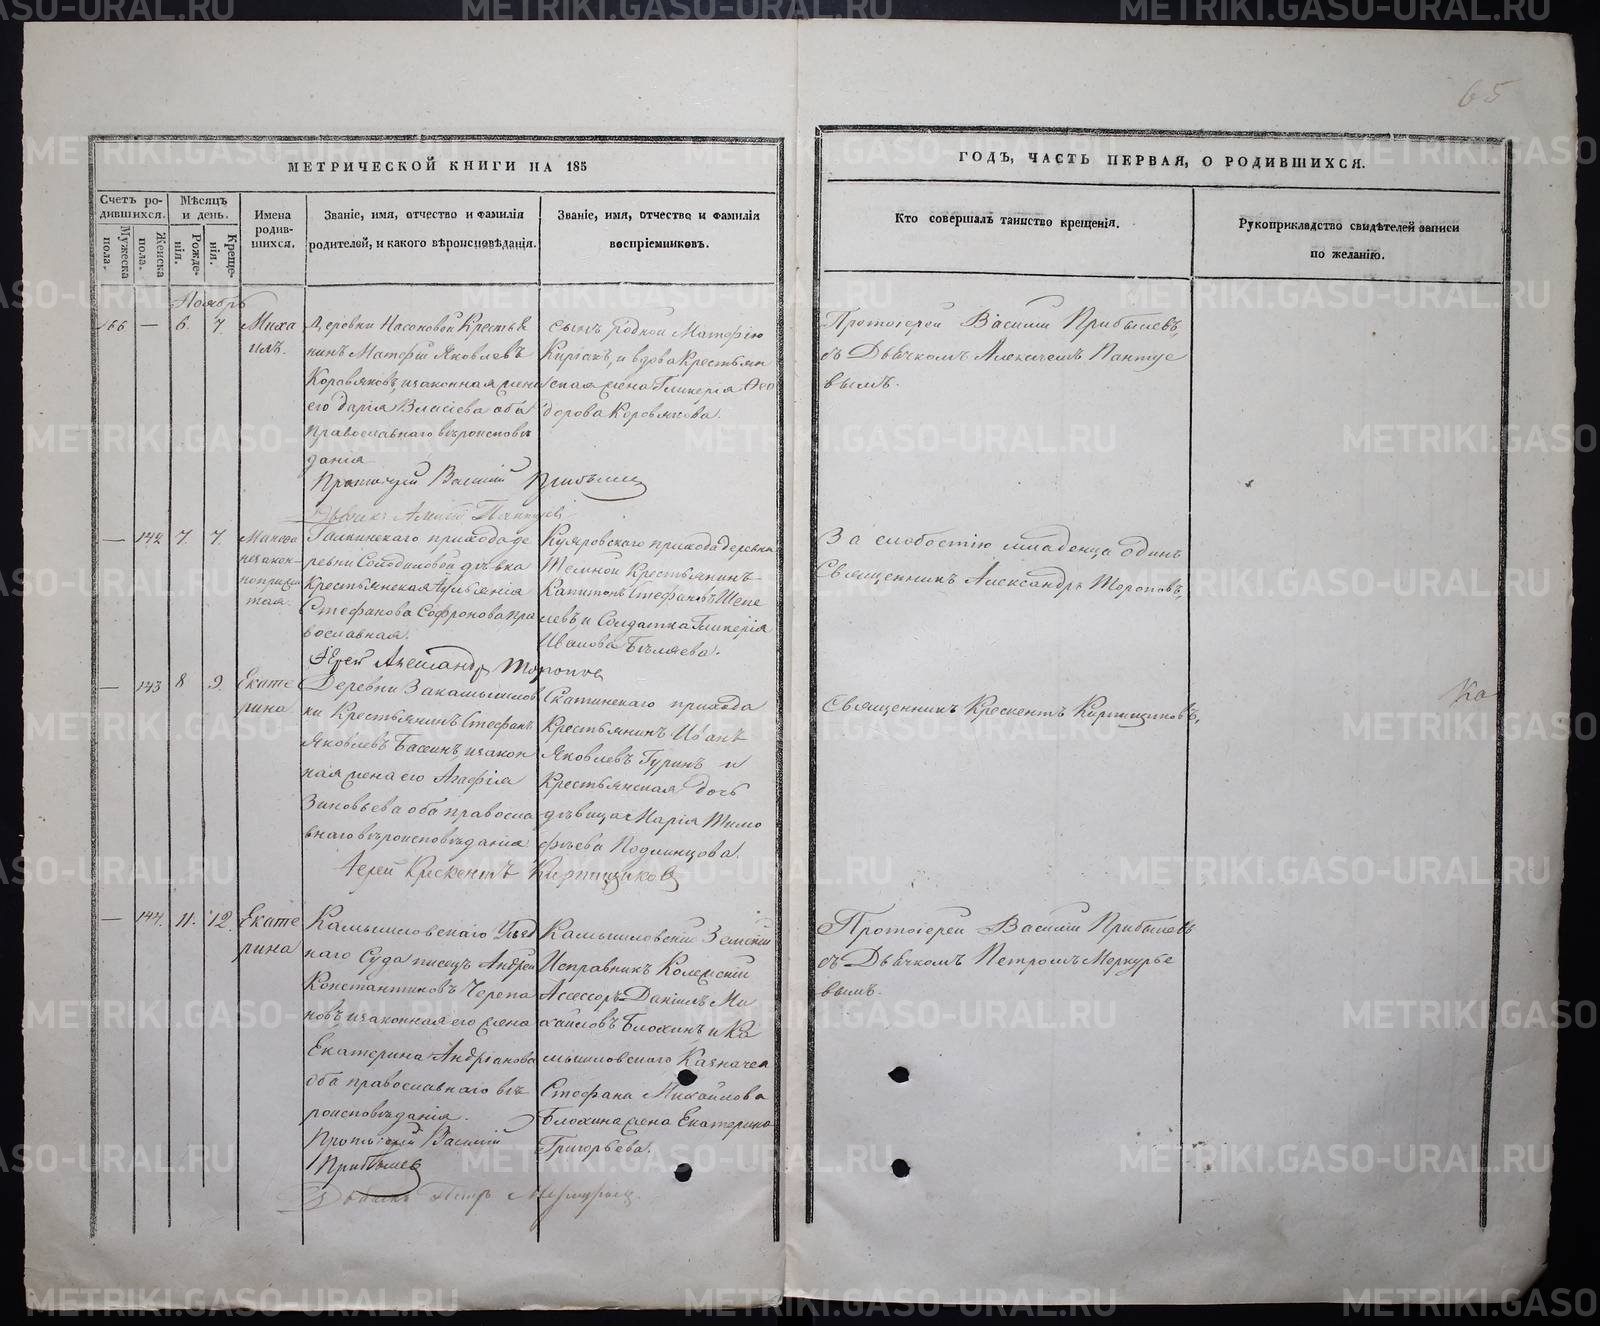 65
МЕТРИЧЕСКОЙ КНИГИ НА 185
ГОДЪ, ЧАСТЬ ПЕРВАЯ, О РОДИВШИХСЯ.
Счетъ ро-
дившихся.
Мужеска
пола.
Женска
пола.
Мѣсяцъ
и день.
Рожде-
нія.
Креще-
нія.
Имена
родив-
шихся.
Званіе, имя, отчество и фамилія
родителей, и какого вѣроисповѣданія.
Званіе, имя, отчество и фамилія
воспріемниковъ.
Кто совершалъ таинство крещенія.
Рукоприкладство свидѣтелей записи
по желанію.
Ноябрь
166 — 6. 7.
Миха
илъ.
Деревни Насоновой Крестья
нинъ Матфій Яковлевъ
Коровяковъ, и законная жена
его Дарія Власіева оба
православнаго вѣроисповѣ
данія
Протоіерей Василій Прибылев
Дьячекъ Алексѣй Пантуев
сынъ родной Матфію
Киріакъ, и вдова Крестьян
ская жена Гликерія Ѳео
дорова Коровякова.
Протоіерей Василій Прибылевъ,
съ Дьячкомъ Алексѣемъ Пантуе
вымъ.
— 142 7. 7.
незакон-
Галкинскаго прихода де
ревни Солодиловой дѣвка
Крестьянская Іуліанія
Стефанова Софронова, пра
вославная.
Іерей Александр Торопов
Куяровскаго прихода деревни
Темной Крестьянинъ
Капитонъ Стефановъ Шепе
левъ, и Солдатка Гликерія
Иванова Бѣляева.
За слабостію младенца одинъ
Священникъ Александръ Тороповъ,
— 143 8 9.
Екате
рина
Деревни Закамышлов
ки Крестьянинъ Стефанъ
Яковлевъ Бассинъ, и закон
ная жена его Агафія
Зиновьева оба правосла
внаго вѣроисповѣданія
Іерей Крескентъ Кирпищиков
Скатинскаго прихода
Крестьянинъ Иванъ
Яковлевъ Гуринъ и
Крестьянская дочь
дѣвица Марія Тимо
фѣева Подлинцова.
Священникъ Крескентъ Кирпищиковъ,
Ка
— 144. 11. 12.
Екате
рина
Камышловскаго Уѣзд
наго Суда писецъ Андрей
Константиновъ Черепа
новъ, и законная его жена
Екатерина Андріанова
оба православнаго вѣ
роисповѣданія.
Протоіерей Василій
Прибылев
Дьячекъ Петръ Меркурьев
Камышловскій Земскій
Исправникъ Колежскій
Асессоръ Даніилъ Ми
хайловъ Блохинъ и Ка
мышловскаго Казначея
Стефана Михайлова
Блохина жена Екатерина
Григорьева.
Протоіерей Василій Прибылевъ
съ Дьячкомъ Петромъ Меркурье
вымъ.
METRIKI.GASO-URAL.RU